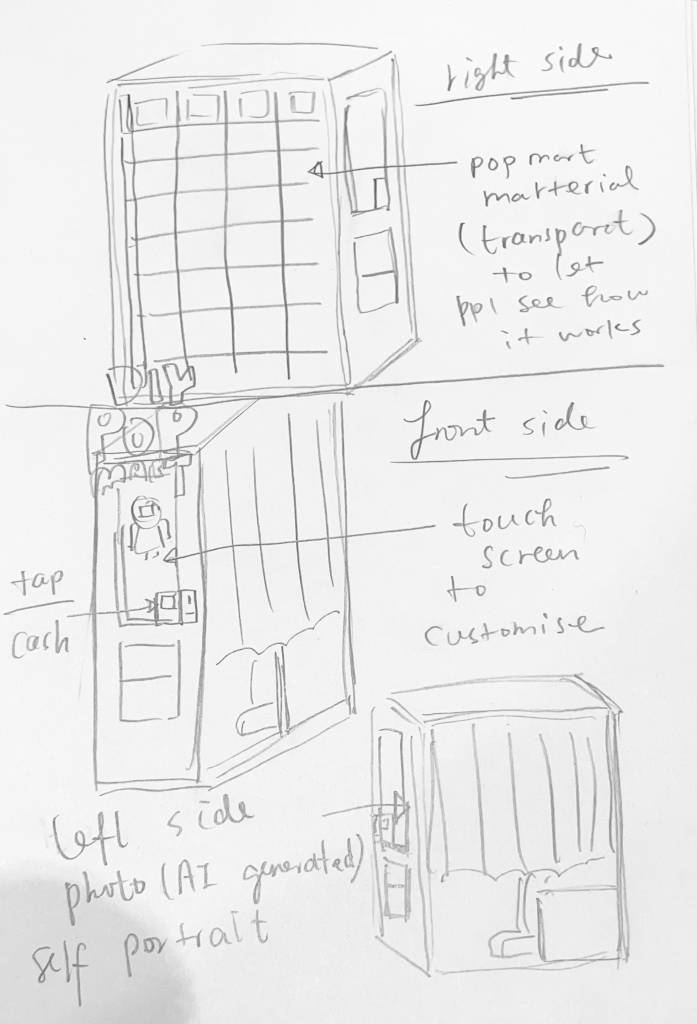 right side
pop mart
marterial
(transparct)
to let
ppl see how
it works
front side
POP
MART
touch
screen
to
customise
tap
cash
left side
photo (AI generated)
self portrait